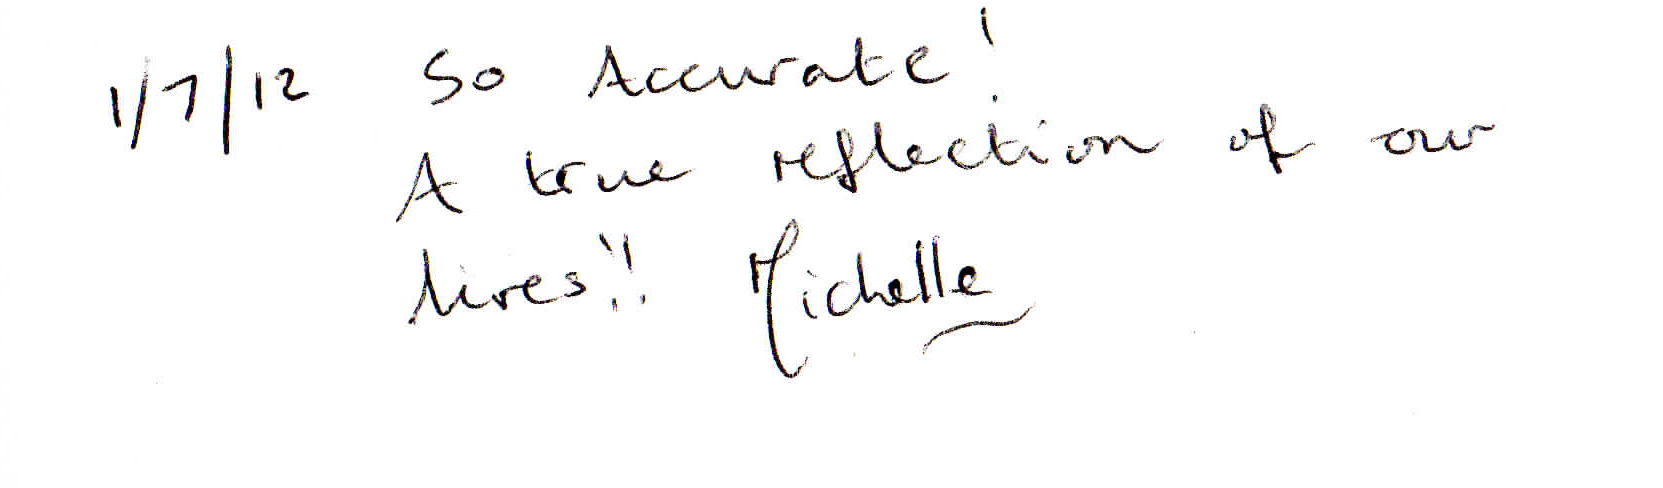 1/7/12 So Accurate!
A true reflection of our
lives!! Michelle